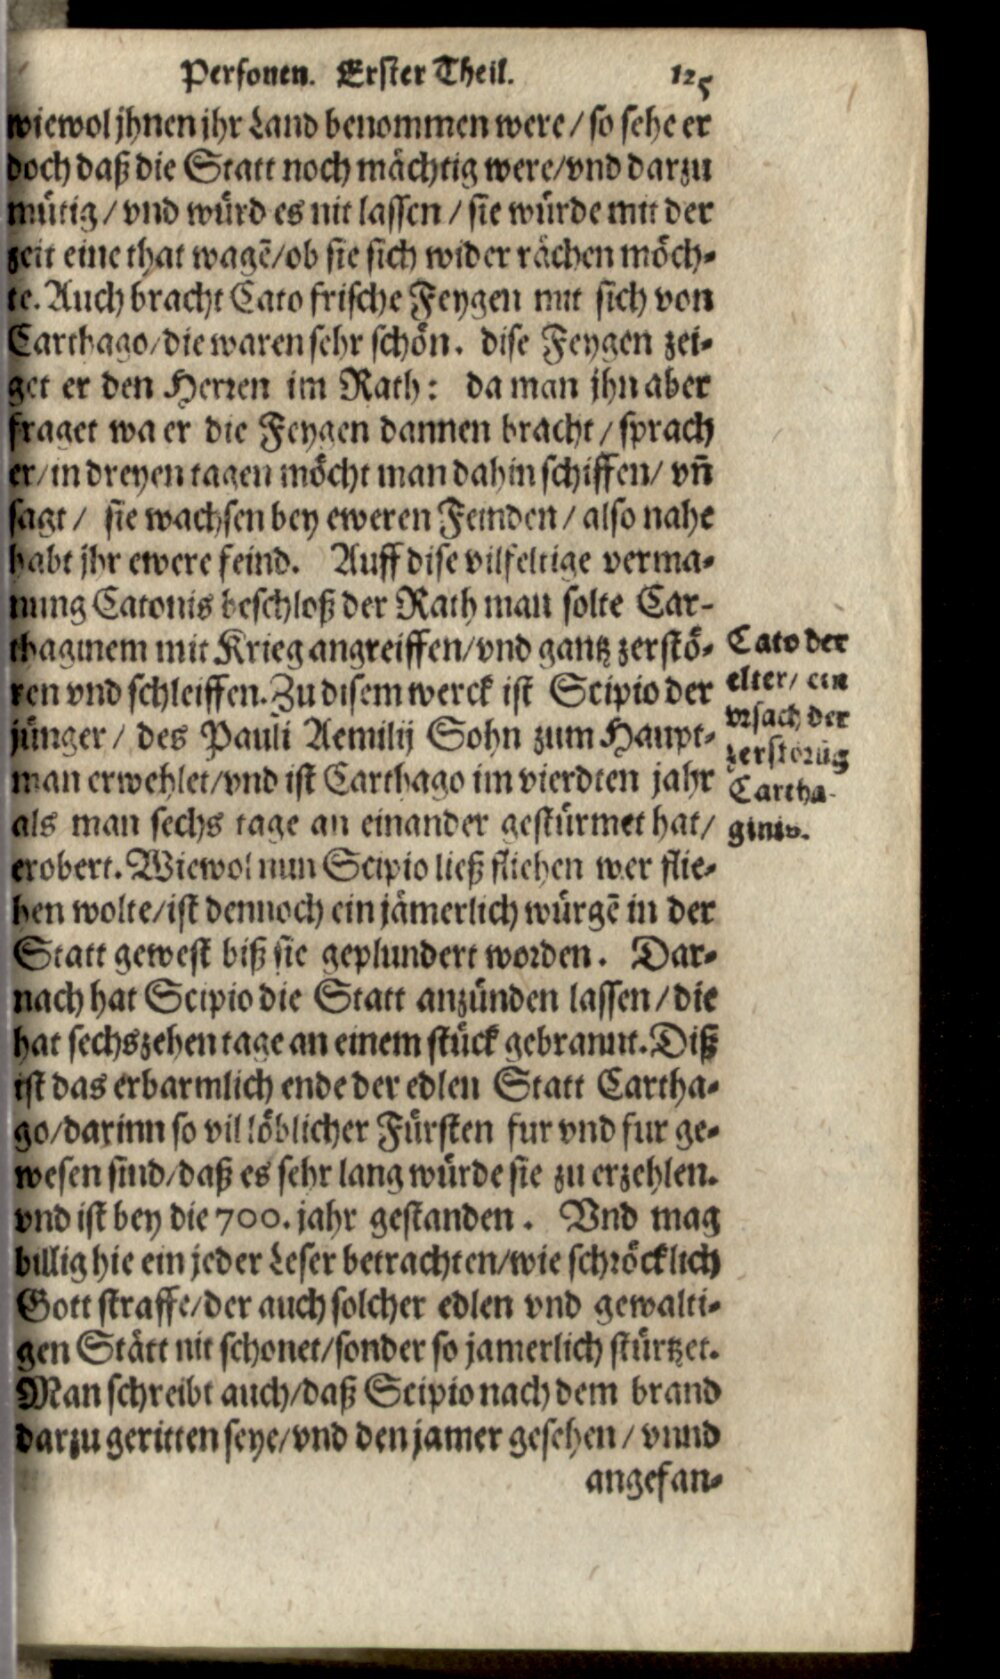 Personen. Erster Theil. 125
wiewol jhnen jhr Land benommen were / so sehe er
doch daß die Statt noch mächtig were/vnd darzu
mütig / vnd würd es nit lassen / sie würde mit der
zeit eine that wagē/ob sie sich wider rächen möch-
te. Auch bracht Cato frische Feygen mit sich von
Carthago/die waren sehr schön. dise Feygen zei-
get er den Herren im Rath: da man jhn aber
fraget wa er die Feygen dannen bracht / sprach
er/in dreyen tagen möcht man dahin schiffen/ vn̄
sagt / sie wachsen bey eweren Feinden / also nahe
habt jhr ewere feind. Auff dise vilfeltige verma-
nung Catonis beschloß der Rath man solte Car-
thaginem mit Krieg angreiffen/vnd gantz zerstö-
ren vnd schleiffen. Zu disem werck ist Scipio der
jünger / des Pauli Aemilij Sohn zum Haupt-
man erwehlet/vnd ist Carthago im vierdten jahr
als man sechs tage an einander gestürmet hat/
erobert. Wiewol nun Scipio ließ fliehen wer flie-
hen wolte/ist dennoch ein jämerlich würgē in der
Statt gewest biß sie geplundert worden. Dar-
nach hat Scipio die Statt anzünden lassen / die
hat sechszehen tage an einem stück gebrannt. Diß
ist das erbarmlich ende der edlen Statt Cartha-
go/darinn so vil löblicher Fürsten fur vnd fur ge-
wesen sind/daß es sehr lang würde sie zu erzehlen.
vnd ist bey die 700. jahr gestanden. Vnd mag
billig hie ein jeder Leser betrachten/wie schröcklich
Gott straffe/der auch solcher edlen vnd gewalti-
gen Stätt nit schonet/sonder so jamerlich stürtzet.
Man schreibt auch/daß Scipio nach dem brand
darzu geritten seye/vnd den jamer gesehen / vnnd
angefan-
Cato der
elter/ ein
vrsach der
zerstörūg
Cartha-
ginis.